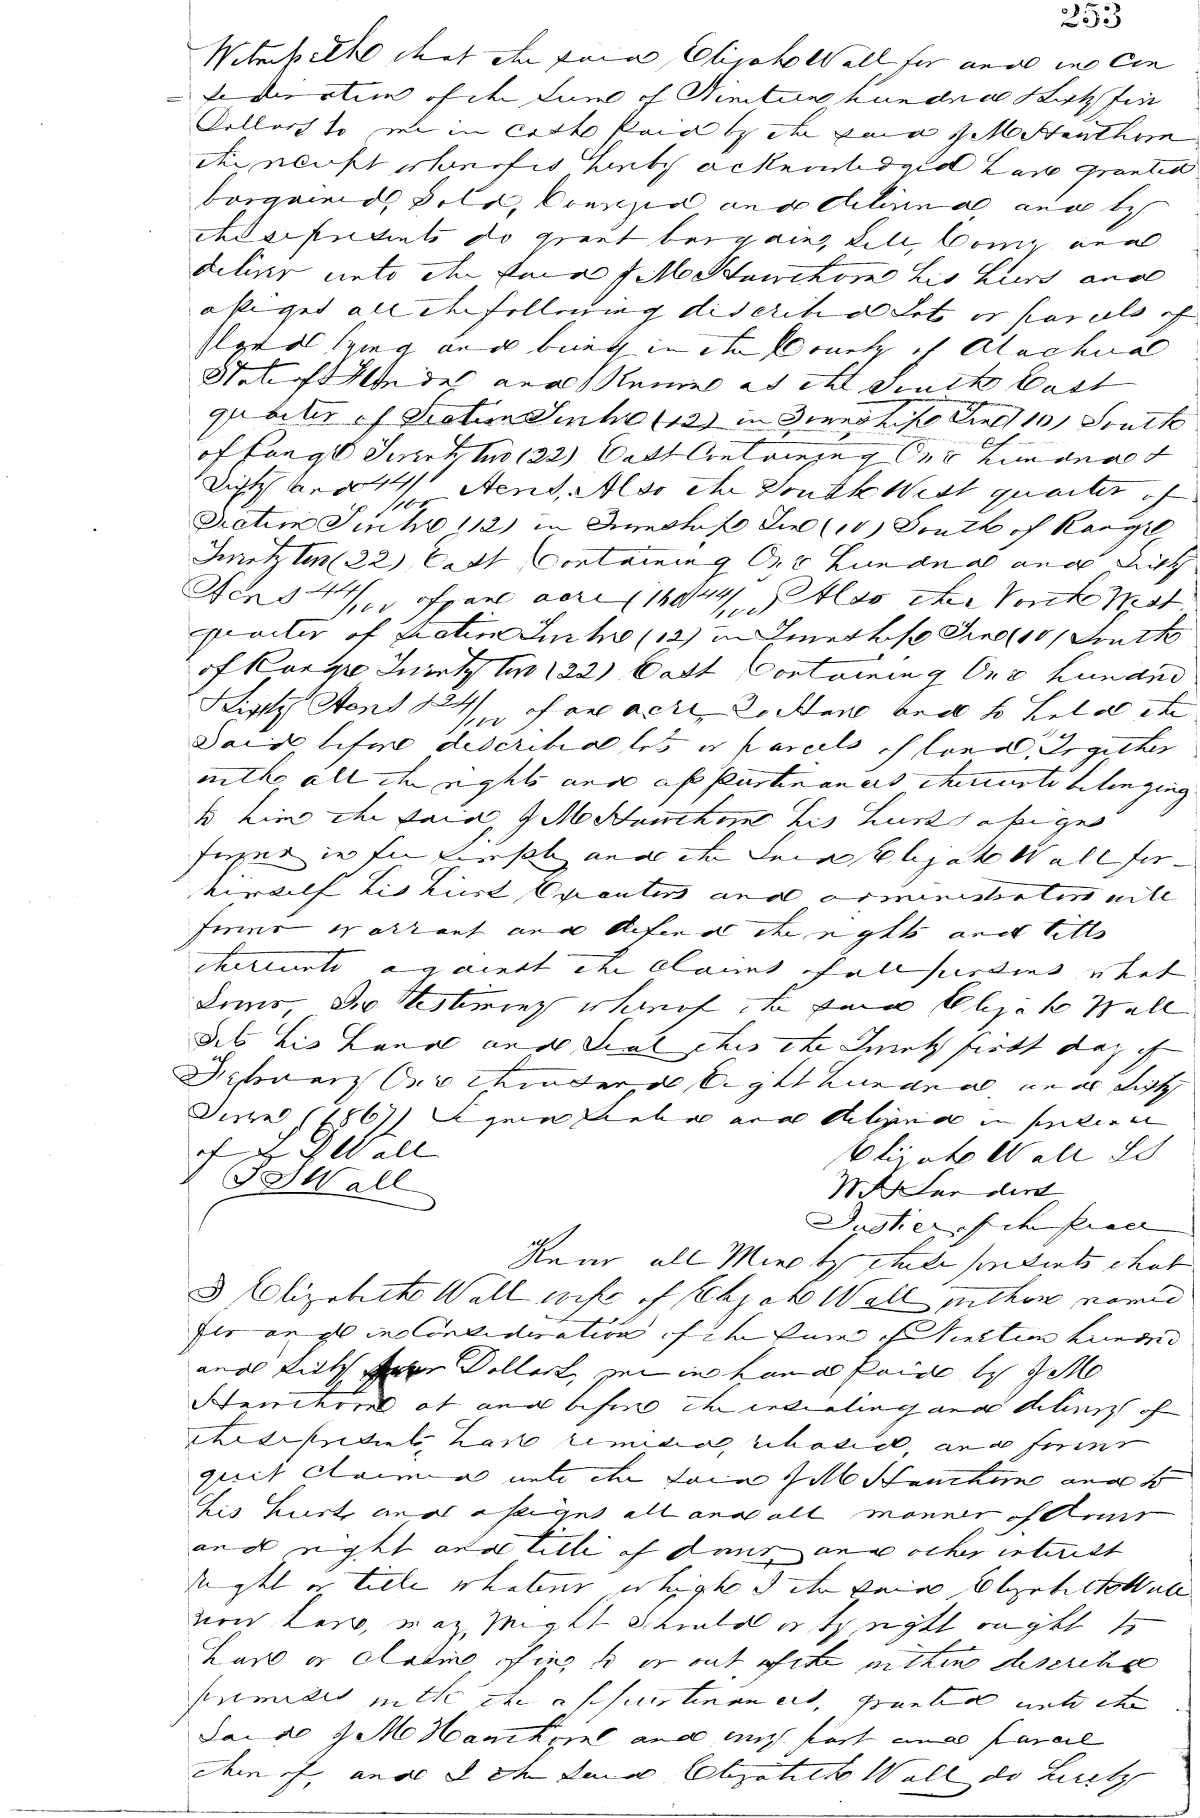 253
Witnesseth that the said Elijah Wall for and in Con
= sideration of the Sum of Nineteen hundred & Sixty five
Dollars to me in cash Paid by the said J M Hawthorn
the receipt whereof is hereby acknowledged have granted
bargained, Sold, Conveyed and delivered, and by
these presents do grant bargain, Sell, Convey and
deliver unto the said J M Hawthorn his heirs and
assigns all the following described Lots or parcels of
Land lying and being in the County of Alachua
State of Florida and Known as the South East
quarter of Section Twelve (12) in Township Ten (10) South
of Range Twenty two (22) East Containing One hundred &
Sixty and 44/100 Acres, Also the South West quarter of
Section Twelve (12) in Township Ten (10) South of Range
Twenty two (22) East Containing One hundred and Sixty
Acres 44/100 of an acre (160 44/100) Also the North West
quarter of Section Twelve (12) in Township Ten (10) South
of Range Twenty two (22) East Containing One hundred
Sixty Acres & 24/100 of an acre, To Have and to hold the
Said before described lots or parcels of land, Together
with all the rights and appurtinances thereunto belonging
to him the said J M Hawthorn his heirs & assigns
forever in fee simple and the Said Elijah Wall for
himself his heirs Executors and administrators will
forever warrant and defend the rights and titls
thereunto against the claims of all persons what
Soever, In testimony whereof the said Elijah Wall
Sets his hand and Seal this the Twenty first day of
February One thousand Eight hundred and Sixty
Seven (1867) Signed Sealed and delivered in presence
of Wall Elijah Wall LS
Wall Sanders
Justice of the Peace
Know all Men by these presents that
I Elizabeth Wall wife of Elijah Wall within named
for and in Consideration of the Sum of Nineteen hundred
and Sixty Dollars, me in hand Paid by J M
Hawthorn at and before the ensealing and delivery of
these presents, have remised, released, and forever
quit claimed unto the said J M Hawthorn and to
his heirs and assigns all and all manner of dower
and right and title of dower and other interest
right or title whatever which I the said Elizabeth Wall
now have, may, Might Should or by right ought to
have or claim of in, to or out of the within described
premises with the appurtinances, granted unto the
Said J M Hawthorn and every part and parcel
thereof, and I the Said Elizabeth Wall do hereby